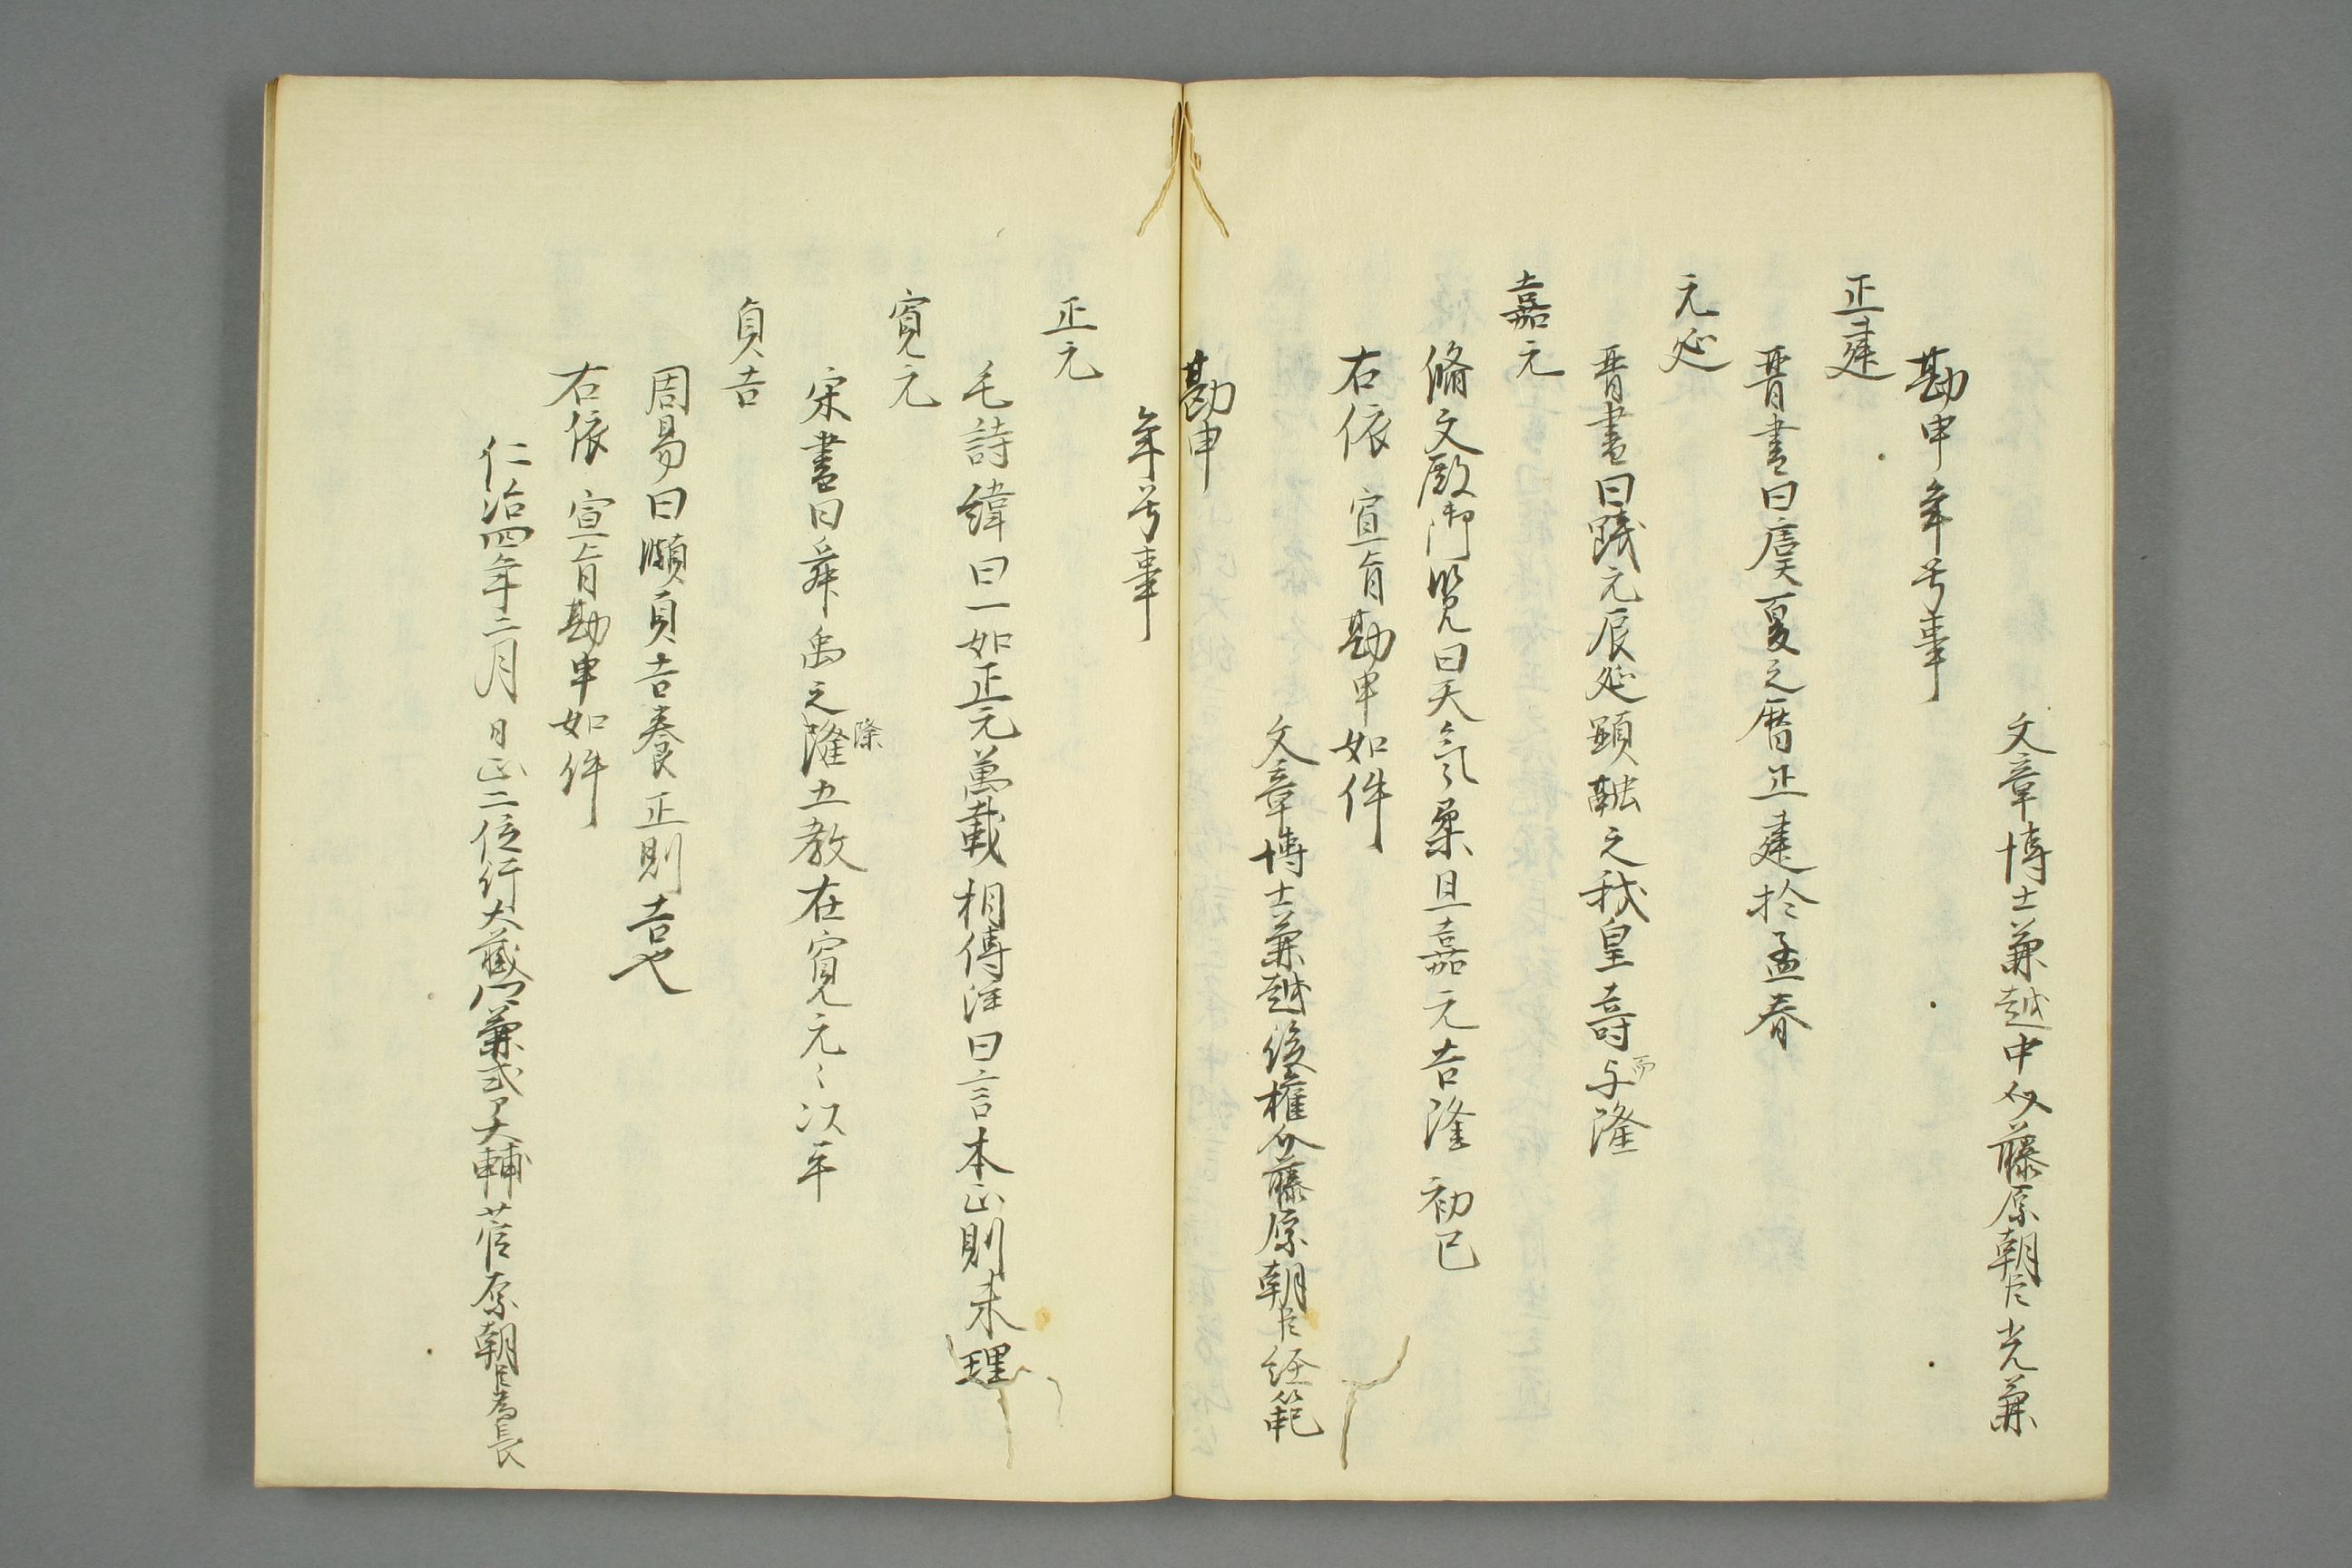 文章博士兼越中介藤原朝臣光兼
勘申年号事
正建
晋書曰虞夏之暦正建於孟春
元延
晋書曰踐元辰延顕融之我皇壽与隆
而
嘉元
脩文殿御覧曰天気柔且嘉元吉隆初巳
右依宣旨勘申如件
文章博士兼越後権介藤原朝臣経範
勘申
年号事
正元
毛詩緯曰一如正元萬載相傳注曰言本正則末理
寛元
宋書曰舜禹之隆五教在寛元〻以平
際
貞吉
周易曰頤貞吉養正則吉也
右依宣旨勘申如件
仁治四年二月日正二位行大蔵卿兼式部大輔菅原朝臣為長